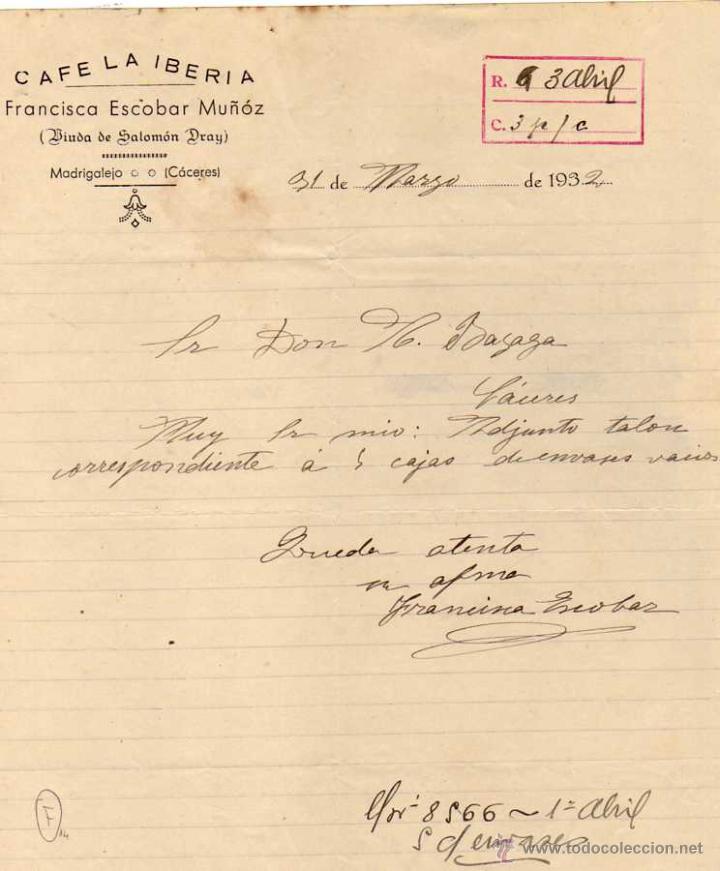 CAFE LA IBERIA
Francisca Escobar Muñóz
(Viuda de Salomón Dray)
Madrigalejo (Cáceres)
R. 3 abril
C. 3 p/c
31 de Marzo de 1932
Sr Don H. Bazaga
Cáceres
Muy Sr mio: Adjunto talon
correspondiente á 5 cajas de envases vacios
Queda atenta
su afma
Francisca Escobar
8566 ~ 1º abril
5 d envases
www.todocoleccion.net